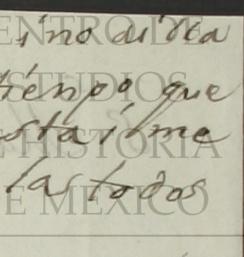 sino di rea
tiénpo que
sta i me
las todos
CENTRO DE
ESTUDIOS
DE HISTORIA
DE MEXICO